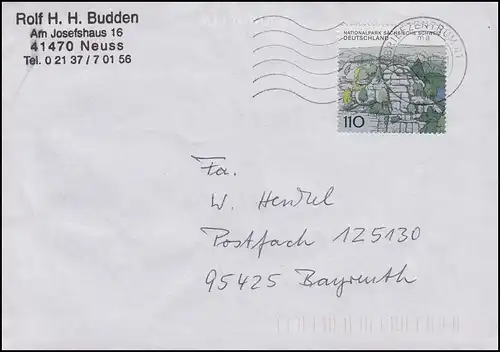 Rolf H. H. Budden
Am Josefshaus 16
41470 Neuss
Tel. 0 21 37 / 7 01 56
BRIEFZENTRUM 41
ma
NATIONALPARK SÄCHSISCHE SCHWEIZ
DEUTSCHLAND
110
Fa.
W. Henkel
Postfach 125130
95425 Bayreuth